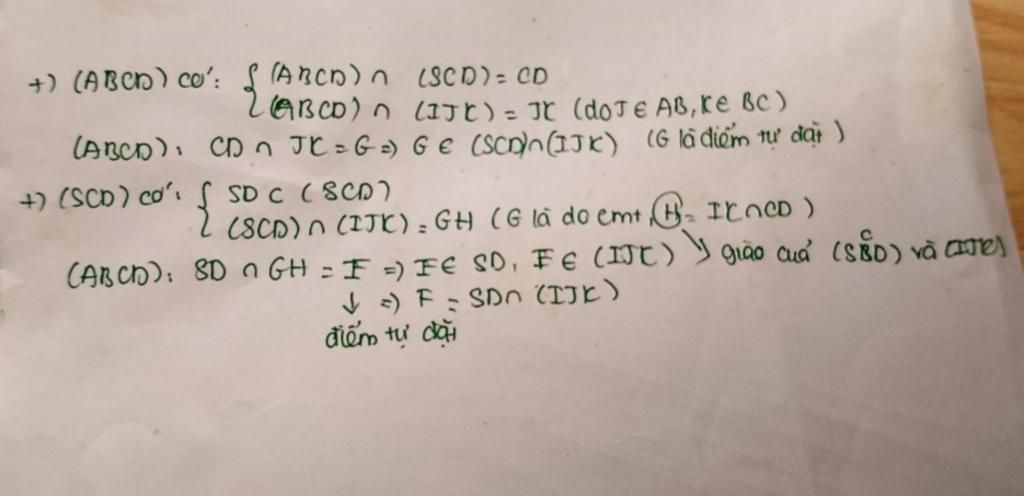 +) (ABCD) có: { (ABCD) ∩ (SCD) = CD
(ABCD) ∩ (IJK) = JK (do J ∈ AB, K ∈ BC)
(ABCD): CD ∩ JK = G => G ∈ (SCD)∩(IJK) (G là điểm tự đặt)
+) (SCD) có: { SD ⊂ (SCD)
(SCD) ∩ (IJK) = GH (G là do cmt, H = IK∩CD)
(ABCD): SD ∩ GH = F => F ∈ SD, F ∈ (IJK) ↘ giao cuả (SCD) và (IJK)
↓ => F = SD∩ (IJK)
điểm tự đặt